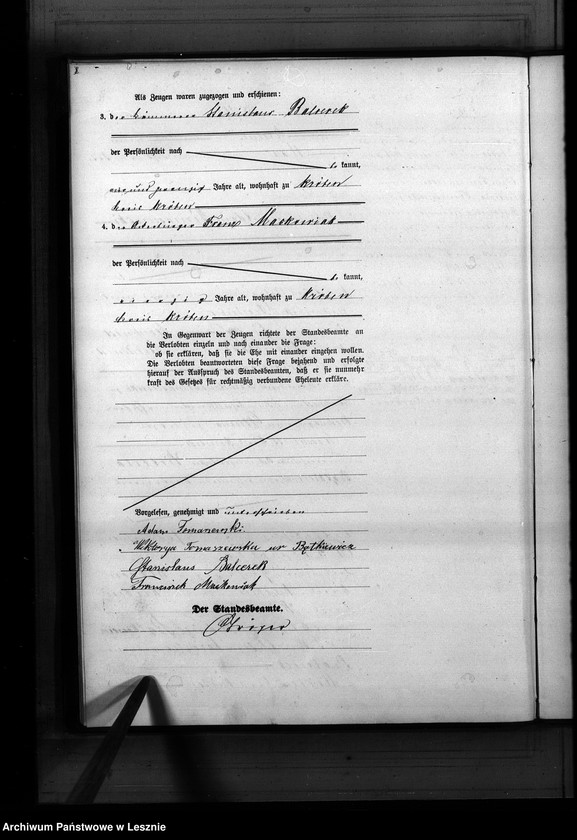 Als Zeugen waren zugezogen und erschienen:
3. der Stanislaus Balcerek
der Persönlichkeit nach
kannt,
Jahre alt, wohnhaft zu Kröben
Kreis Kröben
4. der Franz Mackowiak
der Persönlichkeit nach
kannt,
Jahre alt, wohnhaft zu Kröben
Kreis Kröben
In Gegenwart der Zeugen richtete der Standesbeamte an
die Verlobten einzeln und nach einander die Frage:
ob sie erklären, daß sie die Ehe mit einander eingehen wollen.
Die Verlobten beantworteten diese Frage bejahend und erfolgte
hierauf der Ausspruch des Standesbeamten, daß er sie nunmehr
kraft des Gesetzes für rechtmäßig verbundene Eheleute erkläre.
Vorgelesen, genehmigt und unterschrieben
Adam Tomaszewski
Wiktorya Tomaszewska
Stanislaus Balcerek
Franciszek Maćkowiak
Der Standesbeamte.
Archiwum Państwowe w Lesznie